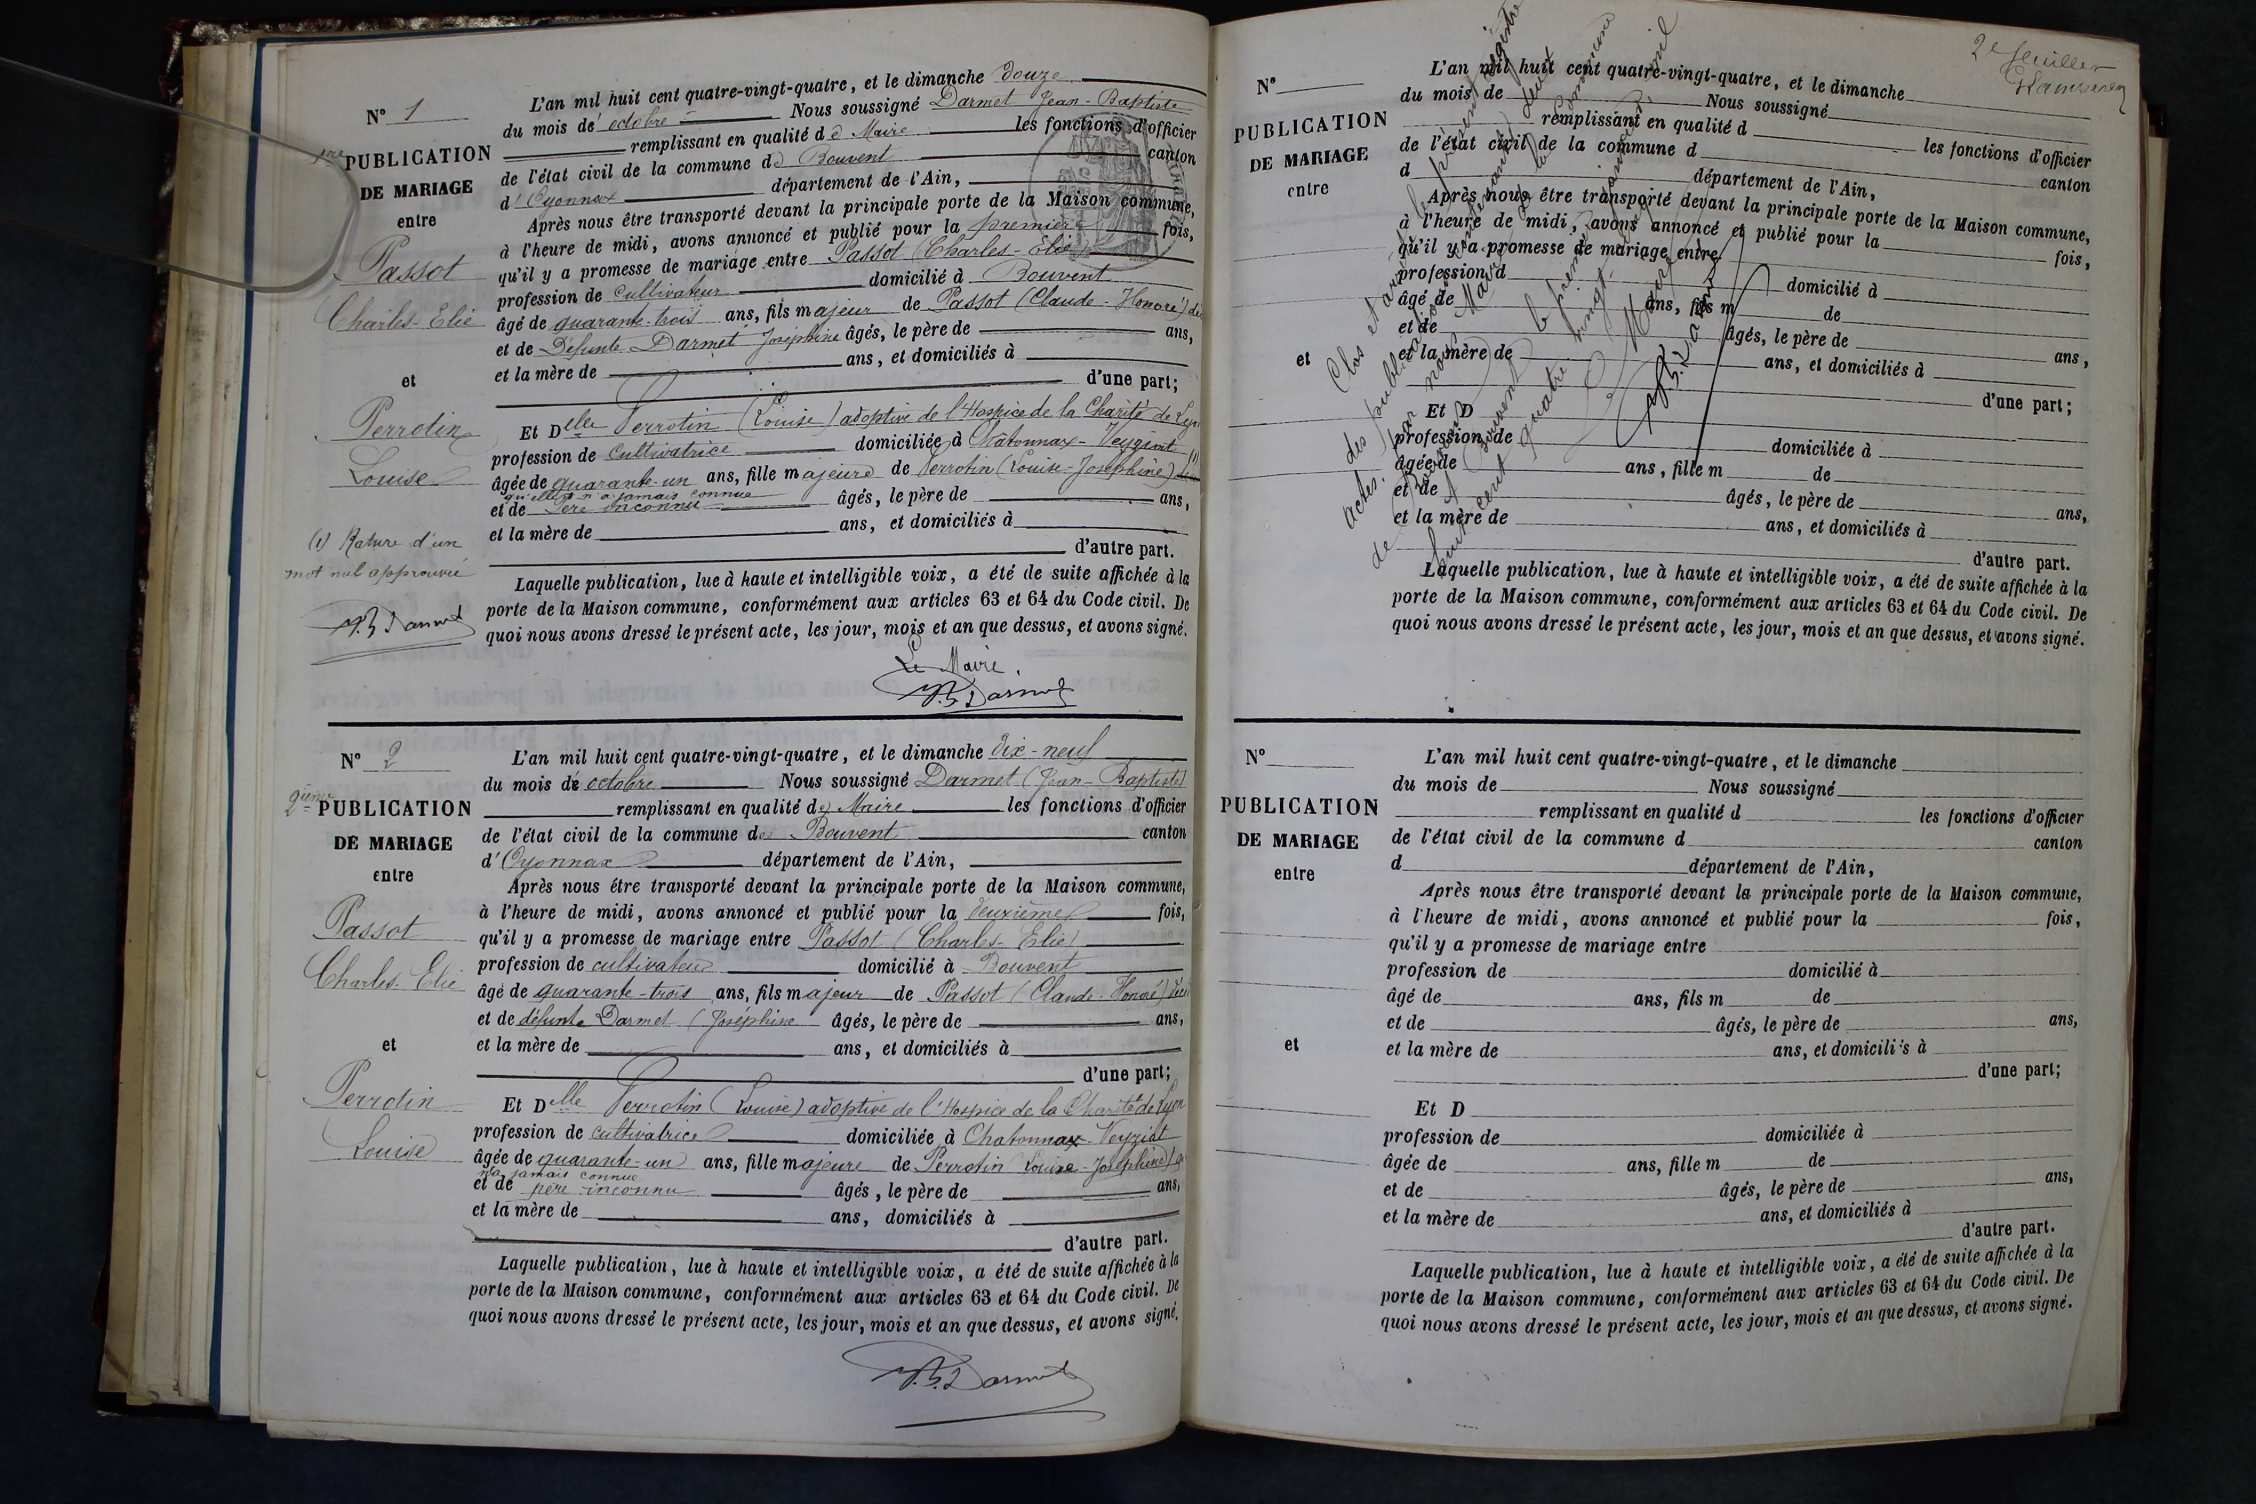 N° 1
1re PUBLICATION
DE MARIAGE
entre
Passot
Charles-Elie
et
Perrotin
Louise
(1) Rature d'un
mot nul approuvé
J.B Darmet
L'an mil huit cent quatre-vingt-quatre, et le dimanche douze
du mois de octobre Nous soussigné Darmet Jean-Baptiste
remplissant en qualité de Maire les fonctions d'officier
de l'état civil de la commune de Bouvent canton
d'Oyonnax département de l'Ain,
Après nous être transporté devant la principale porte de la Maison commune,
à l'heure de midi, avons annoncé et publié pour la première fois,
qu'il y a promesse de mariage entre Passot (Charles-Elie)
profession de cultivateur domicilié à Bouvent
âgé de quarante-trois ans, fils majeur de Passot (Claude-Honoré)
et de Défunte Darmet Joséphine âgés, le père de ans,
et la mère de ans, et domiciliés à
d'une part;
Et Delle Perrotin (Louise) adoptive de l'Hospice de la Charité de Lyon
profession de cultivatrice domiciliée à Châtonnax-Veyziat
âgée de quarante-un ans, fille majeure de Perrotin (Louise-Joséphine) (1)
qu'elle n'a jamais connue
et de Père inconnu âgés, le père de ans,
et la mère de ans, et domiciliés à
d'autre part.
Laquelle publication, lue à haute et intelligible voix, a été de suite affichée à la
porte de la Maison commune, conformément aux articles 63 et 64 du Code civil. De
quoi nous avons dressé le présent acte, les jour, mois et an que dessus, et avons signé.
Le Maire
J.B Darmet
N° 2
2ième PUBLICATION
DE MARIAGE
entre
Passot
Charles-Elie
et
Perrotin
Louise
L'an mil huit cent quatre-vingt-quatre, et le dimanche dix-neuf
du mois de octobre Nous soussigné Darmet (Jean-Baptiste)
remplissant en qualité de Maire les fonctions d'officier
de l'état civil de la commune de Bouvent canton
d'Oyonnax département de l'Ain,
Après nous être transporté devant la principale porte de la Maison commune,
à l'heure de midi, avons annoncé et publié pour la deuxième fois,
qu'il y a promesse de mariage entre Passot (Charles-Elie)
profession de cultivateur domicilié à Bouvent
âgé de quarante-trois ans, fils majeur de Passot (Claude-Honoré)
et de défunte Darmet (Joséphine âgés, le père de ans,
et la mère de ans, et domiciliés à
d'une part;
Et Delle Perrotin (Louise) adoptive de l'Hospice de la Charité de Lyon
profession de cultivatrice domiciliée à Chatonnax-Veyziat
âgée de quarante-un ans, fille majeure de Perrotin (Louise-Joséphine)
n'a jamais connue
et de père inconnu âgés, le père de ans,
et la mère de ans, domiciliés à
d'autre part.
Laquelle publication, lue à haute et intelligible voix, a été de suite affichée à la
porte de la Maison commune, conformément aux articles 63 et 64 du Code civil. De
quoi nous avons dressé le présent acte, les jour, mois et an que dessus, et avons signé.
J.B. Darmet
2e feuillet
N°
PUBLICATION
DE MARIAGE
entre
et
L'an mil huit cent quatre-vingt-quatre, et le dimanche
du mois de Nous soussigné
remplissant en qualité d les fonctions d'officier
de l'état civil de la commune d canton
d département de l'Ain,
Après nous être transporté devant la principale porte de la Maison commune,
à l'heure de midi, avons annoncé et publié pour la fois,
qu'il y a promesse de mariage entre
profession d domicilié à
âgé de ans, fils m de
et de âgés, le père de ans,
et la mère de ans, et domiciliés à
d'une part;
Et D
profession de domiciliée à
âgée de ans, fille m de
et de âgés, le père de ans,
et la mère de ans, et domiciliés à
d'autre part.
Laquelle publication, lue à haute et intelligible voix, a été de suite affichée à la
porte de la Maison commune, conformément aux articles 63 et 64 du Code civil. De
quoi nous avons dressé le présent acte, les jour, mois et an que dessus, et avons signé.
Clos et arrêté le présent registre
des publications
actes, par nous Maire de la commune
de Bouvent le premier janvier mil
huit cent quatre vingt
Le Maire
J.B. Darmet
N°
PUBLICATION
DE MARIAGE
entre
et
L'an mil huit cent quatre-vingt-quatre, et le dimanche
du mois de Nous soussigné
remplissant en qualité d les fonctions d'officier
de l'état civil de la commune d canton
d département de l'Ain,
Après nous être transporté devant la principale porte de la Maison commune,
à l'heure de midi, avons annoncé et publié pour la fois,
qu'il y a promesse de mariage entre
profession de domicilié à
âgé de ans, fils m de
et de âgés, le père de ans,
et la mère de ans, et domiciliés à
d'une part;
Et D
profession de domiciliée à
âgée de ans, fille m de
et de âgés, le père de ans,
et la mère de ans, et domiciliés à
d'autre part.
Laquelle publication, lue à haute et intelligible voix, a été de suite affichée à la
porte de la Maison commune, conformément aux articles 63 et 64 du Code civil. De
quoi nous avons dressé le présent acte, les jour, mois et an que dessus, et avons signé.